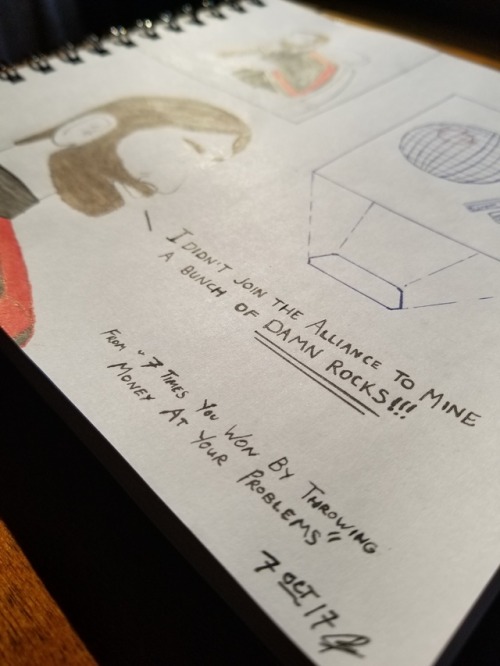 I DIDN'T JOIN THE ALLIANCE TO MINE
A BUNCH OF DAMN ROCKS!!!
FROM "7 TIMES YOU WON BY THROWING
MONEY AT YOUR PROBLEMS"
7 OCT 17